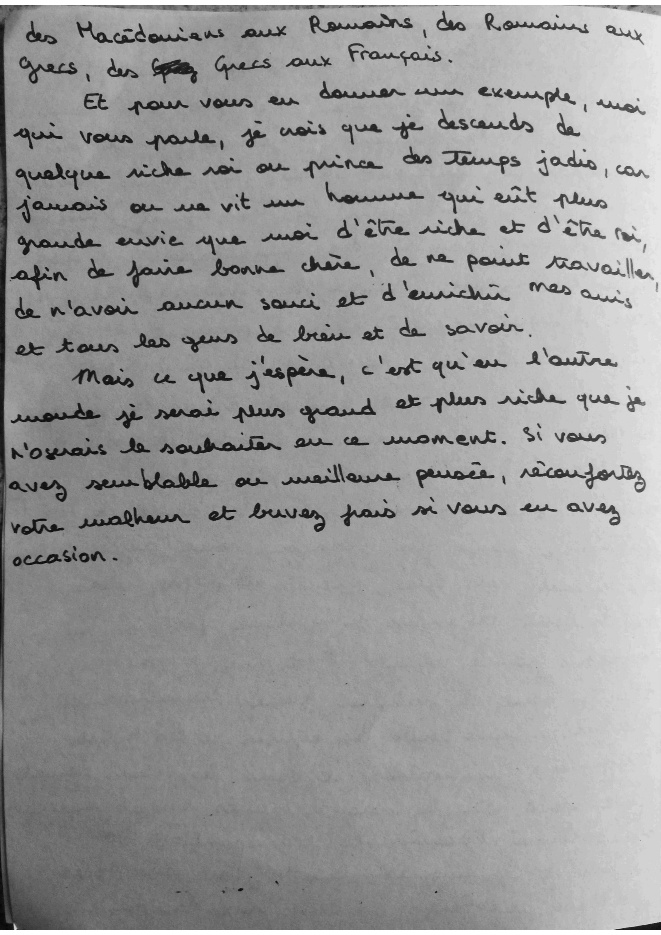 des Macédoniens aux Romains, des Romains aux
grecs, des Grecs aux Français.
Et pour vous en donner un exemple, moi
qui vous parle, je crois que je descends de
quelque riche roi ou prince des temps jadis, car
jamais on ne vit un homme qui eût plus
grande envie que moi d'être riche et d'être roi,
afin de faire bonne chère, de ne point travailler,
de n'avoir aucun souci et d'enrichir mes amis
et tous les gens de bien et de savoir.
Mais ce que j'espère, c'est qu'en l'autre
monde je serai plus grand et plus riche que je
n'oserais le souhaiter en ce moment. Si vous
avez semblable ou meilleure pensée, réconfortez
votre malheur et buvez frais si vous en avez
occasion.